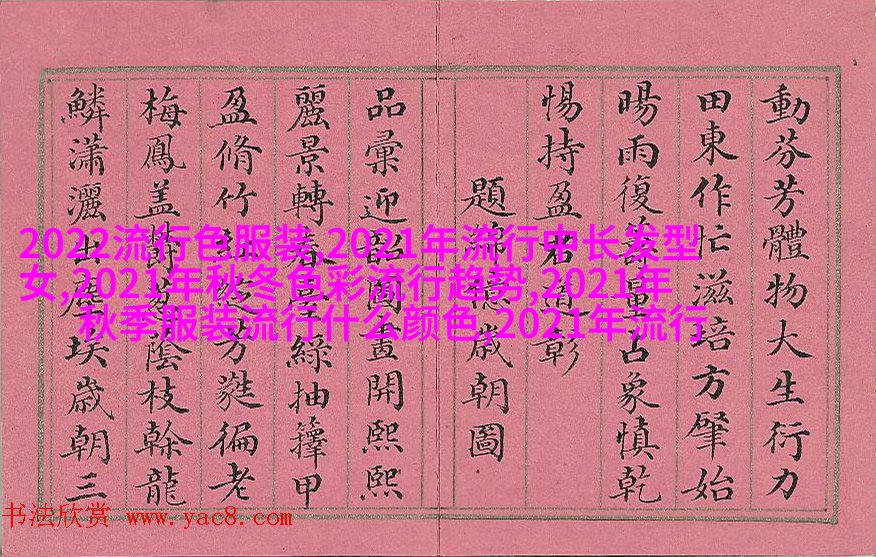 動芬芳體物大生衍力
田東作忙滋培方肇始
暘雨復量占象慎乾
惕持盈彰
題歲朝圖
品彙迎韶圖畫開熙熙
麗景轉春綠抽籜甲
盈脩竹芳蕤徧老
梅鳳蓋陰枝榦龍
鱗瀟灑出塵埃歲朝三
2022流行色服装,2021年流行中长发型
女,2021年秋冬色彩流行趋势,2021年
秋季服装流行什么颜色,2021年流行
书法欣赏 www.yac8.com